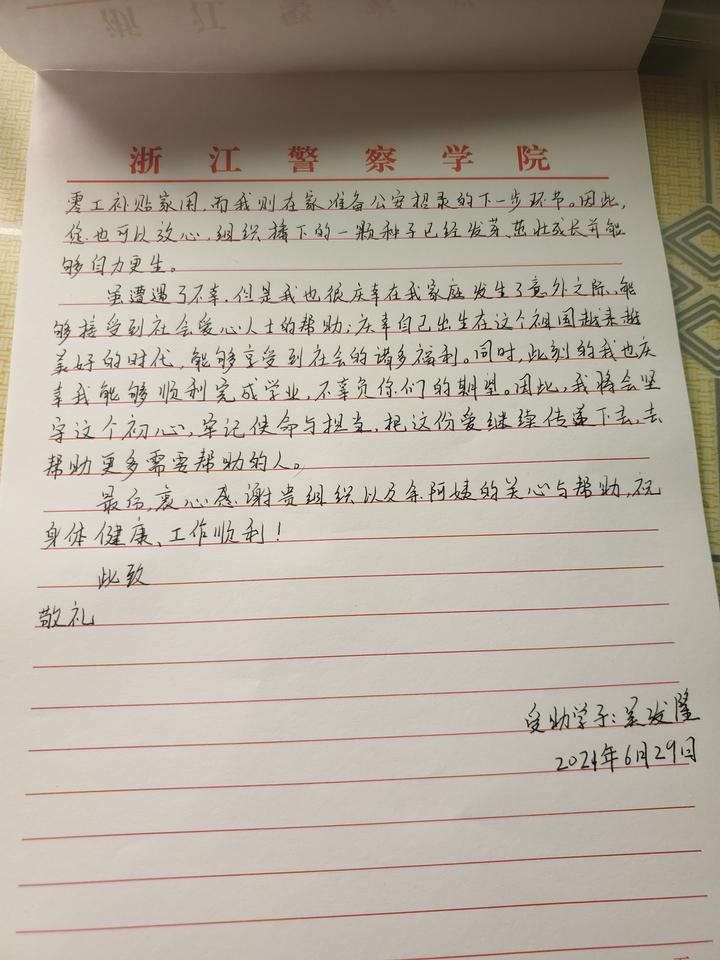 浙江警察学院
零工补贴家用，而我则在家准备公安招录的下一步环节。因此，
您也可以放心，组织播下的一颗种子已经发芽、茁壮成长并能
够自力更生。
虽遭遇了不幸，但是我也很庆幸在我家庭发生了意外之际，能
够接受到社会爱心人士的帮助；庆幸自己出生在这个祖国越来越
美好的时代，能够享受到社会的诸多福利。同时，此刻的我也庆
幸我能够顺利完成学业，不辜负你们的期望。因此，我将会坚
守这个初心，牢记使命与担当，把这份爱继续传递下去，去
帮助更多需要帮助的人。
最后，衷心感谢贵组织以及余阿姨的关心与帮助，祝
身体健康、工作顺利！
此致
敬礼
受助学子：吴发隆
2021年6月29日